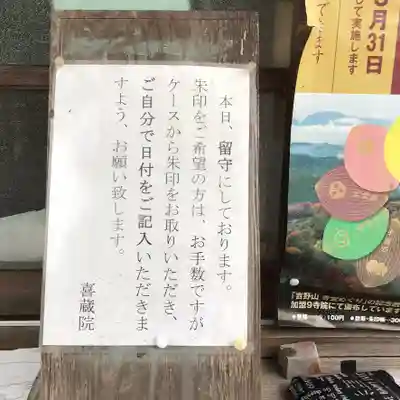 本日、留守にしております。
朱印をご希望の方は、お手数ですが
ケースから朱印をお取りいただき、
ご自分で日付をご記入いただきま
すよう、お願い致します。
喜蔵院
月31日
して実施します
できます
「吉野山
加盟9寺院にて頒布しています
100円